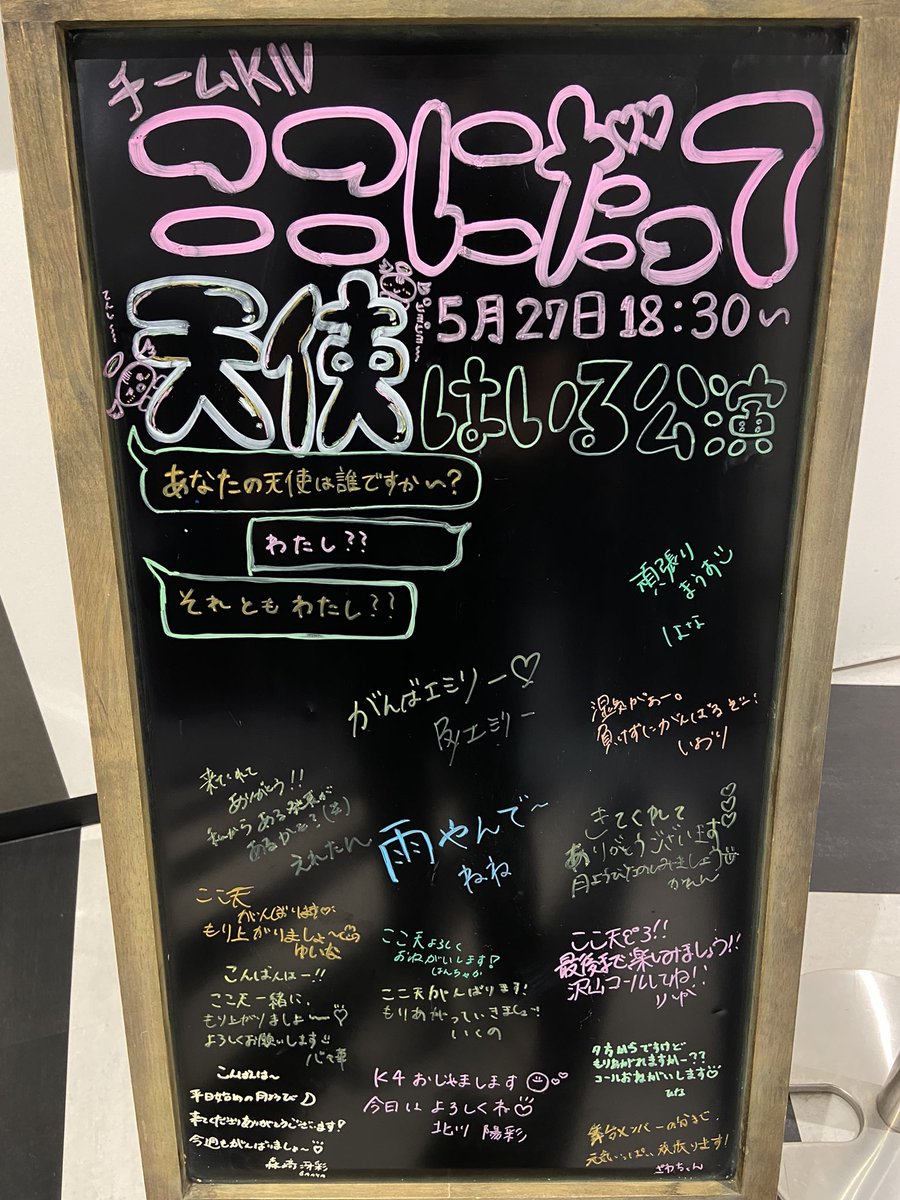 チームKⅣ
ここにだって
天使
5月27日18:30〜
はいる公演
あなたの天使は誰ですかい〜?
わたし??
それともわたし??
頑張り
まうす
はな
がんばエミリー♡
エミリー
湿気がぁー。
負けずにがんばるぞ
いおり
来てくれて
ありがとう!!
私からある発表が
あるかも?
えれたん
雨やんで〜
ねね
きてくれて
ありがとうございます
月ようびたのしみましょう
かれん
ここ天
がんばります
もり上がりましょ〜
ゆいな
ここ天よろしく
おねがいします!
ほんちゃか
ここ天だろ!!
最後まで楽しみましょう!!
沢山コールしてね!!
りの
こんばんはー!!
ここ天一緒に、
もり上がりましょー♡
よろしくお願いします
ここ天がんばります!
もりあがっていきましょ
いくの
夕方ですけど
もりあがれますかー??
コールおねがいします♡
ひな
こんばんは〜
平日始めの月ようび♪
来てくださりありがとうございます!
今週もがんばりましょ〜♡
森﨑冴彩
K4おじゃまします
今日はよろしくね
北川 陽彩
舞台メンバーの分まで、
元気いっぱい頑張ります!
ざわちゃん